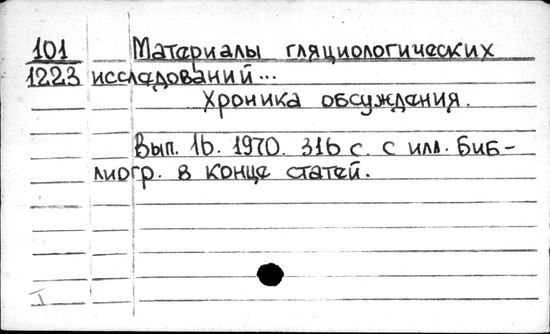 101 Материалы гляциологических
1223 исследований...
Хроника обсуждения.
Вып. 16. 1970. 316 с. с илл. Биб-
лиогр. в конце статей.
I